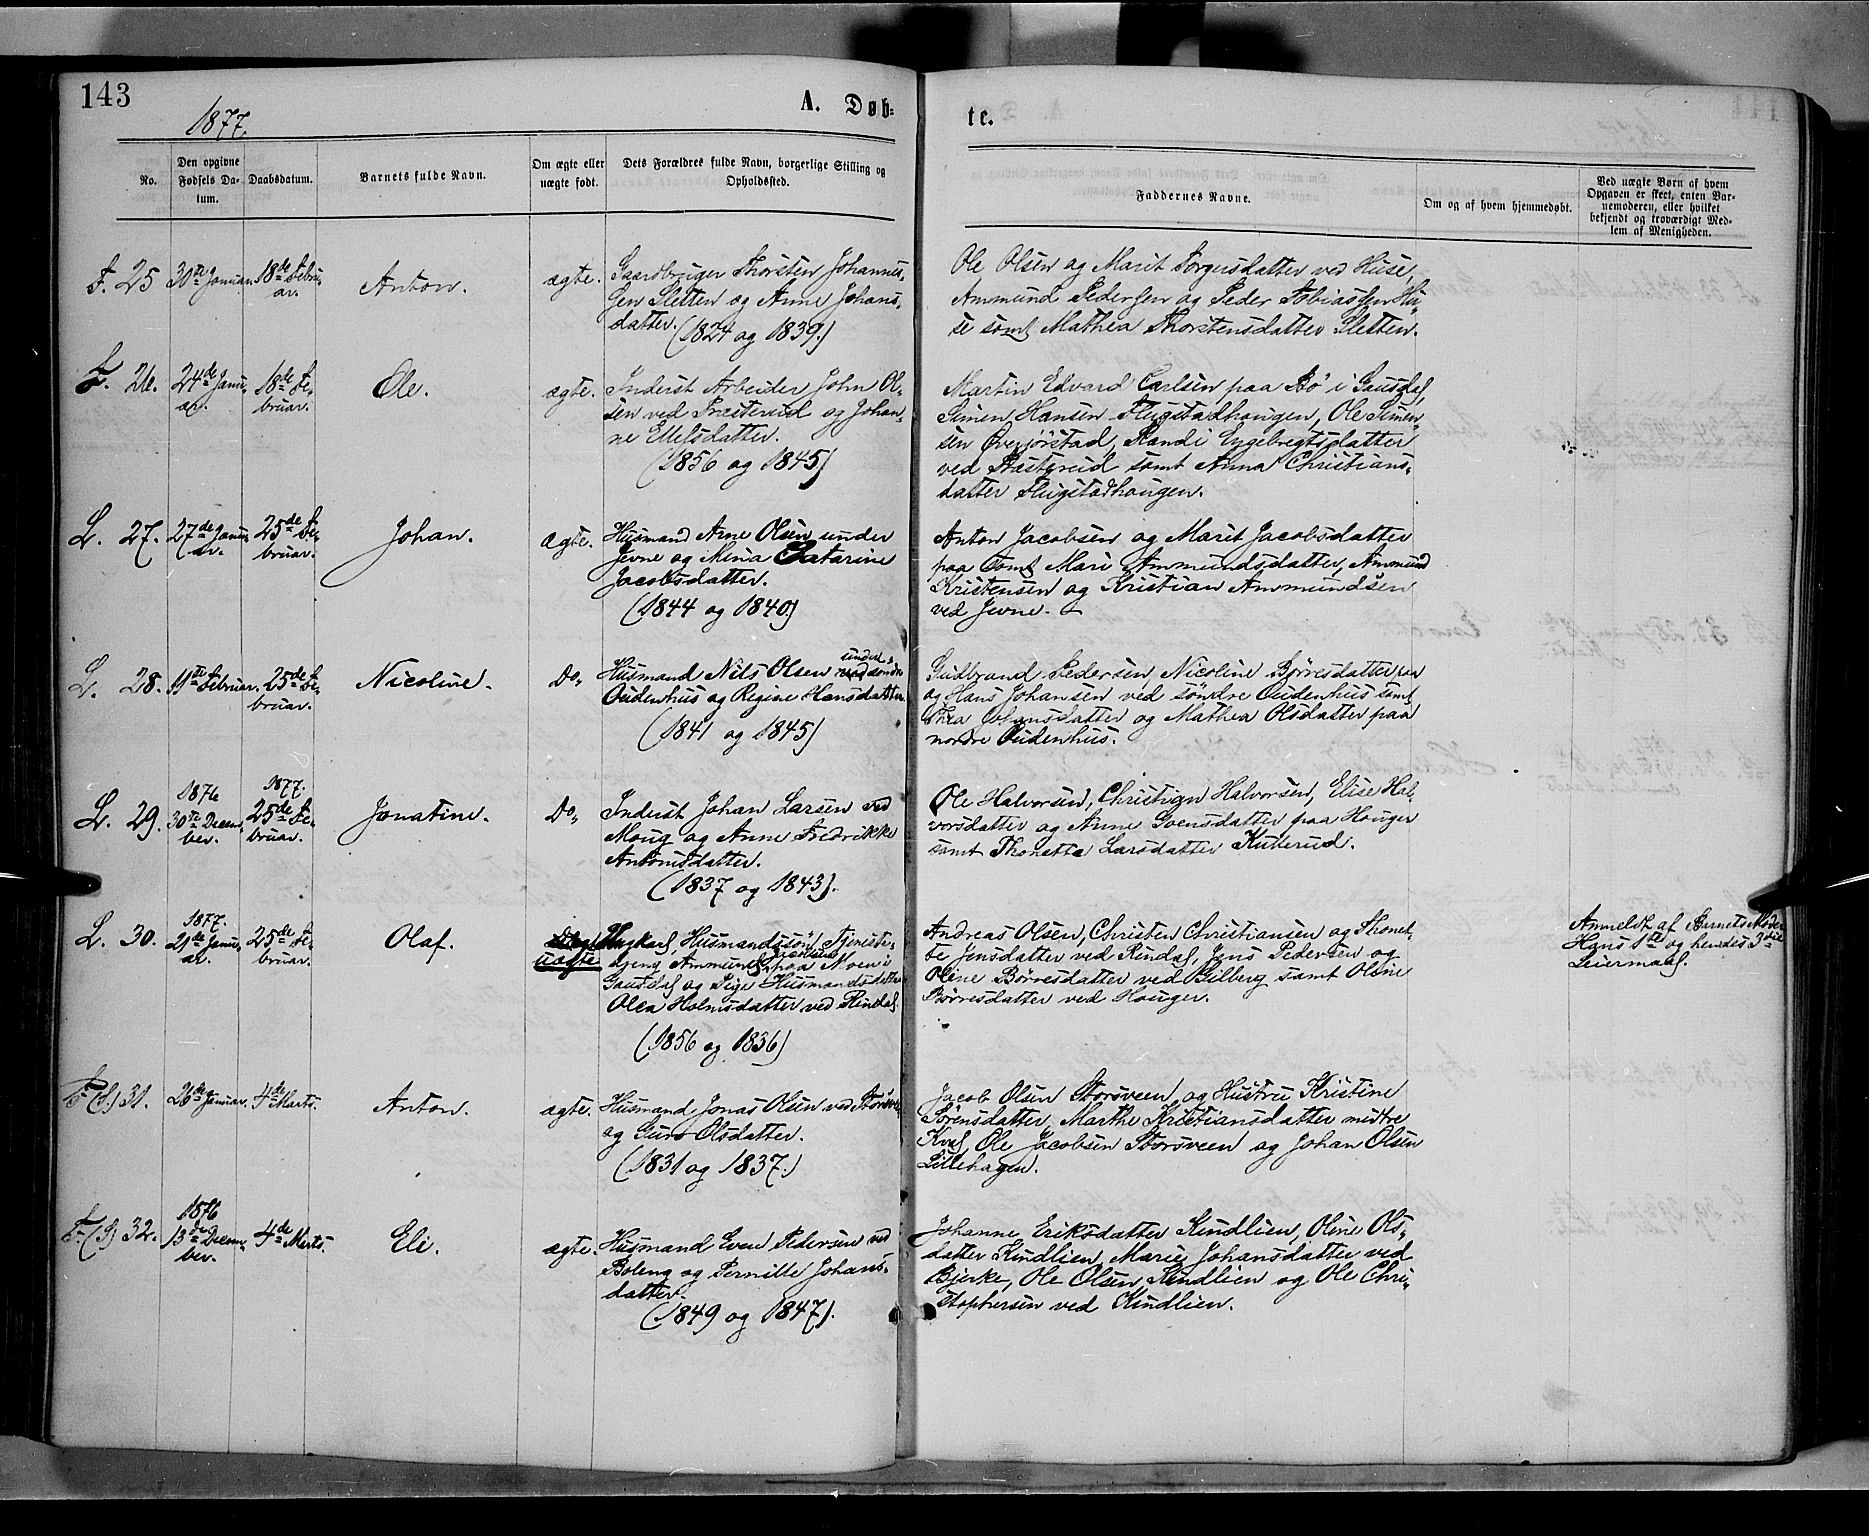 143
1877.
A. Døb-
te.
No.
Den opgivne
Fødsels Da-
tum.
Daabsdatum.
Barnets fulde Navn.
Om ægte eller
uægte født.
Dets Forældres fulde Navn, borgerlige Stilling og
Opholdssted.
Faddernes Navne.
Om og af hvem hjemmedøbt.
Ved uægte Børn af hvem
Opgaven er skeet, enten Bar-
nemoderen, eller hvilket
bekjendt og troværdigt Med-
lem af Menigheden.
F. 25
30te Januar.
18de Febru-
ar.
Anton.
ægte.
Gaardbruger Thorsten Johannes-
sen Sletten og Anne Johans-
datter.
(1824 og 1839.)
Ole Olsen og Marit Torgersdatter ved Huse,
Ammund Pedersen og Peder Tobiassen Hu-
se samt Mathea Thorstensdatter Sletten.
F. 26.
24de Janu-
ar.
18de Fe-
bruar.
Ole.
ægte.
Inderst Arbeider John Ol-
sen ved Præsterud og Johan-
ne Ellefsdatter.
(1856 og 1845)
Martin Edvard Carlsen paa Bø i Gausdal,
Simen Hansen Flugstadhaugen, Ole Simen-
sen Øverjørstad, Randi Engebregtsdatter
ved Præsterud samt Anna Christians-
datter Flugstadhaugen.
L. 27.
27de Janu-
ar.
25de Fe-
bruar.
Johan.
ægte.
Husmand Arne Olsen under
Jevne og Mina Catarine
Jacobsdatter.
(1844 og 1840)
Anton Jacobsen og Marit Jacobsdatter
paa samt Mari Ammundsdatter, Ammund
Kristensen og Kristian Ammundsen
ved Jevne.
L. 28.
11te Februar.
25de Fe-
bruar.
Nicoline.
Do.
Husmand Nils Olsen under søndre
Oudenhus og Regine Hansdatter
(1841 og 1845)
Gudbrand Pedersen, Nicoline Børresdatter paa
og Hans Johansen ved søndre Oudenhus samt
Thea Johansdatter og Mathea Olsdatter paa
nordre Oudenhus.
L. 29.
1876
30te Decem-
ber.
1877.
25de Fe-
bruar.
Jonatine.
Do.
Inderst Johan Larsen ved
Moug og Anne Fredrikke
Antonsdatter.
(1837 og 1843).
Ole Halvorsen, Christian Halvorsen, Elise Hal-
vorsdatter og Anne Svensdatter paa Houger
samt Thonette Larsdatter Kutterud.
L. 30.
1877.
21de Janu-
ar.
25de Fe-
bruar.
Olaf.
uægte.
Ungkarl Husmandssøn, Tjeneste-
dreng Ammund Jacobsen paa Moen i
Gausdal og Pige Husmandsdatter
Olea Holmsdatter ved Rindal.
(1856 og 1836)
Andreas Olsen, Christen Christiansen og Thonet-
te Jensdatter ved Rindal, Jens Pedersen og
Oline Børresdatter ved Bilberg samt Oline
Børresdatter ved Houger.
Anmeldt af Barnets Moder
Hans 1te og hendes 3die
Leiermaal.
F. (S.) 31.
26de Januar.
4de Marts.
Anton.
ægte.
Husmand Jonas Olsen ved Storsveen
og Guro Olsdatter.
(1831 og 1837.)
Jacob Olsen Storsveen og Hustru Kristine
Sørensdatter, Marthe Kristiansdatter midtre
Kval, Ole Jacobsen Storsveen og Johan Olsen
Lillehagen.
F. (S) 32.
1876
13de Decem-
ber.
4de Marts.
Eli.
ægte.
Husmand Even Pedersen ved
Boleng og Pernille Johans-
datter.
(1849 og 1847).
Johanne Eriksdatter Kindlien, Oline Ols-
datter Kindlien, Marie Johansdatter ved
Bjerke, Ole Olsen Kindlien og Ole Chri-
stophersen ved Kindlien.